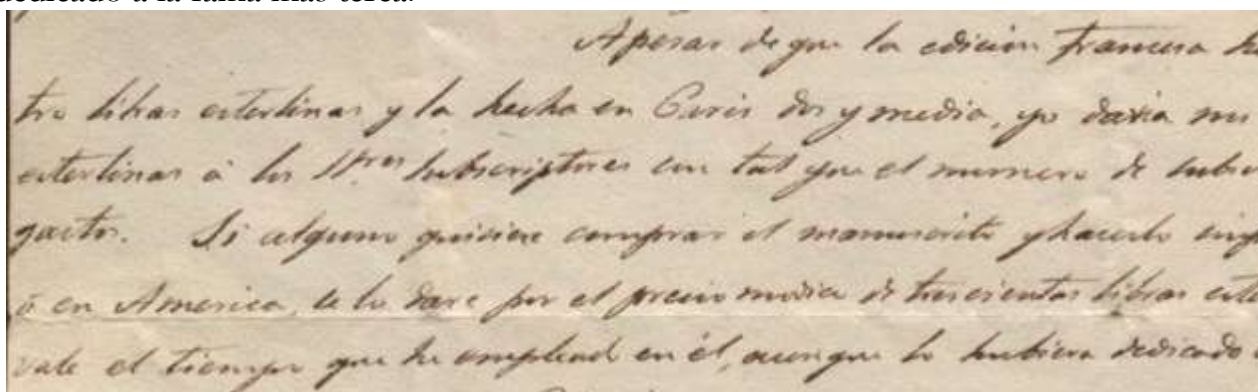 dedicado a la
Apesar de que la edicion francesa
tro libras esterlinas y la hecha en Paris dos y media, yo daria mi
esterlinas à los S.res Subscriptores con tal que el numero de subs
gastos. Si alguno quisiere comprar el manuscrito y hacerlo imp
ò en America, se lo dare por el precio modico de trescientas libras este
vale el tiempo que he emplead en él, aunque lo hubiera dedicado